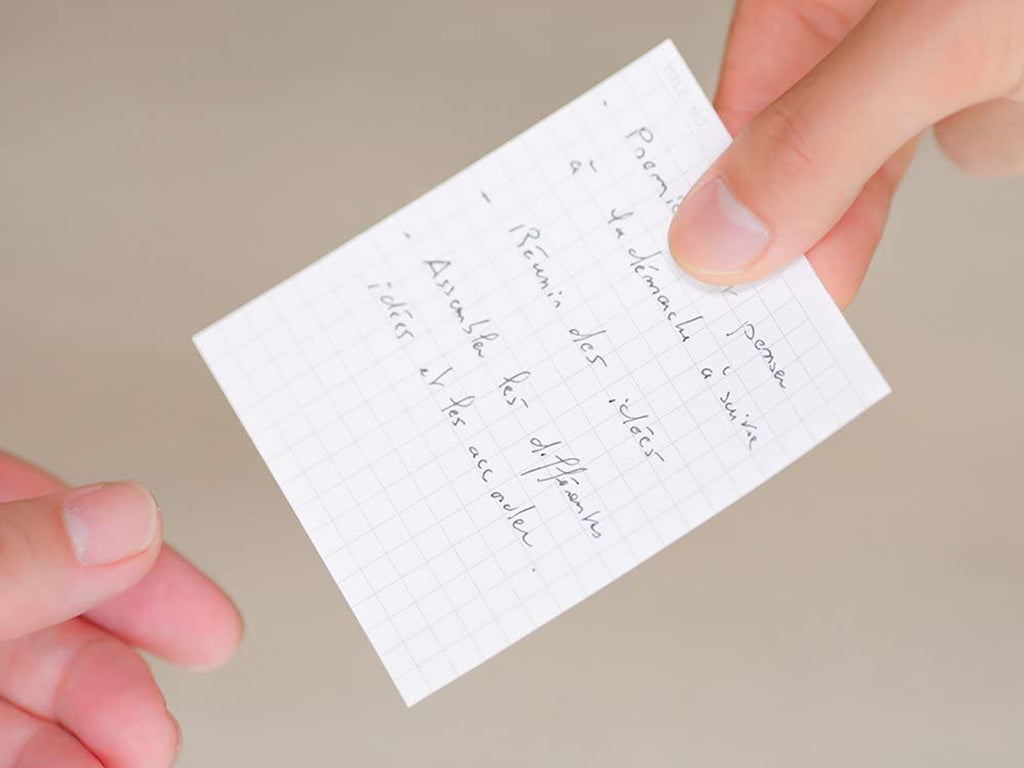 - penser
à la démarche à suivre
- Réunir des idées
- Assembler les différentes
idées et les accorder.